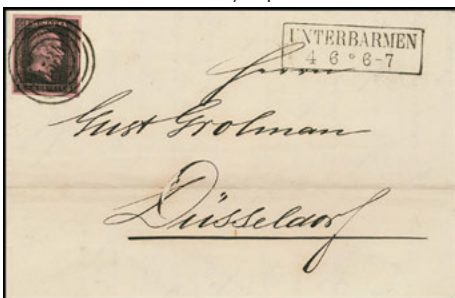 UNTERBARMEN
4 6 * 6-7
Herrn
Gust Grolman
Düsseldorf